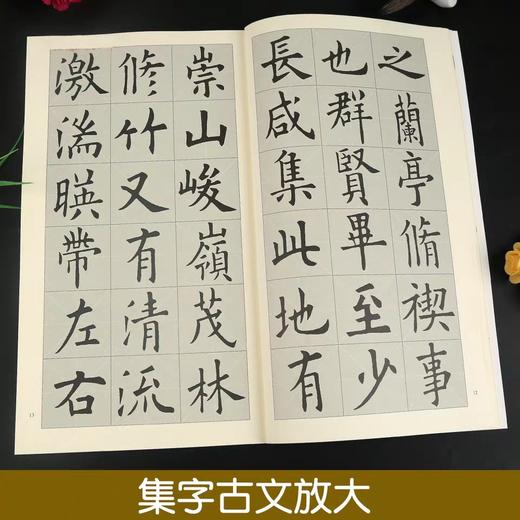 之蘭亭脩禊事
也群賢畢至少
長咸集此地有
崇山峻嶺茂林
修竹又有清流
激湍暎帶左右
12
13
集字古文放大